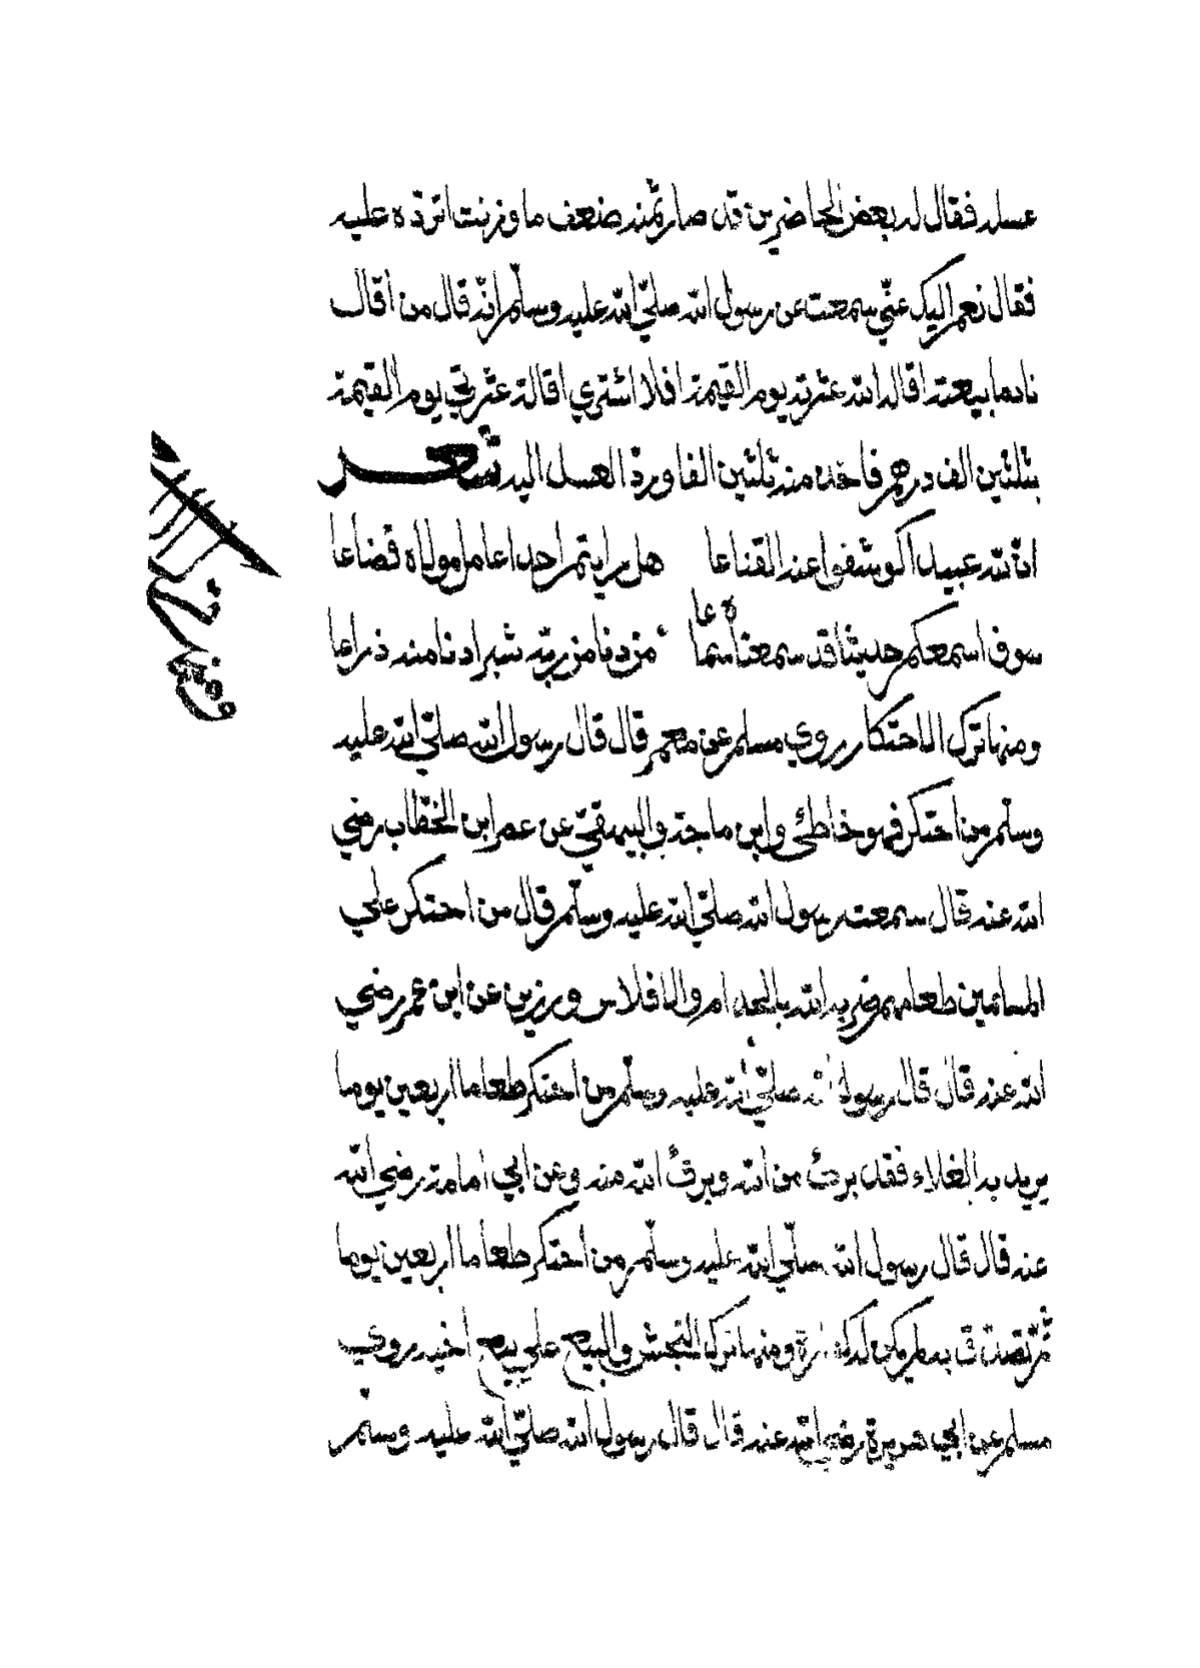 عسله فقال له بعض الحاضرين قد صار ثمنه ضعف ما وزنت اترده عليه
فقال نعم اليك عنّي سمعت عن رسول الله صلّي الله عليه وسلّم انّه قال من اقال
نادما بيعته اقاله الله عثرته يوم القيمة افلا اشتري اقالة عثرتي يوم القيمة
بثلثين الف درهم فاخذ منه ثلثين الفا وردّ العسل اليه شعر
انّ لله عبيدا كوشفوا عند القناعا هل رايتم احدا عامل مولاه فضاعا
سوف اسمعكم حديثا قد سمعناه سماعا من دنا من ربّه شبرا دنا منه ذراعا
ومنها ترك الاحتكار روي مسلم عن معمر قال قال رسول الله صلّي الله عليه
وسلّم من احتكر فهو خاطئ وابن ماجة والبيهقيّ عن عمر ابن الخطّاب رضي
الله عنه قال سمعت رسول الله صلّي الله عليه وسلّم قال من احتكر علي
المسلمين طعامهم ضربه الله بالجذام والافلاس ورزين عن ابن عمر رضي
الله عنه قال قال رسول الله صلّي الله عليه وسلّم من احتكر طعاما اربعين يوما
يريد به الغلاء فقد برئ من الله وبرئ الله منه وعن ابي امامة رضي الله
عنه قال قال رسول الله صلّي الله عليه وسلّم من احتكر طعاما اربعين يوما
ثمّ تصدّق به لم يكن له كفارة ومنها ترك النجش والبيع علي بيع اخيه روي
مسلم عن ابي هريرة رضي الله عنه قال قال رسول الله صلّي الله عليه وسلّم